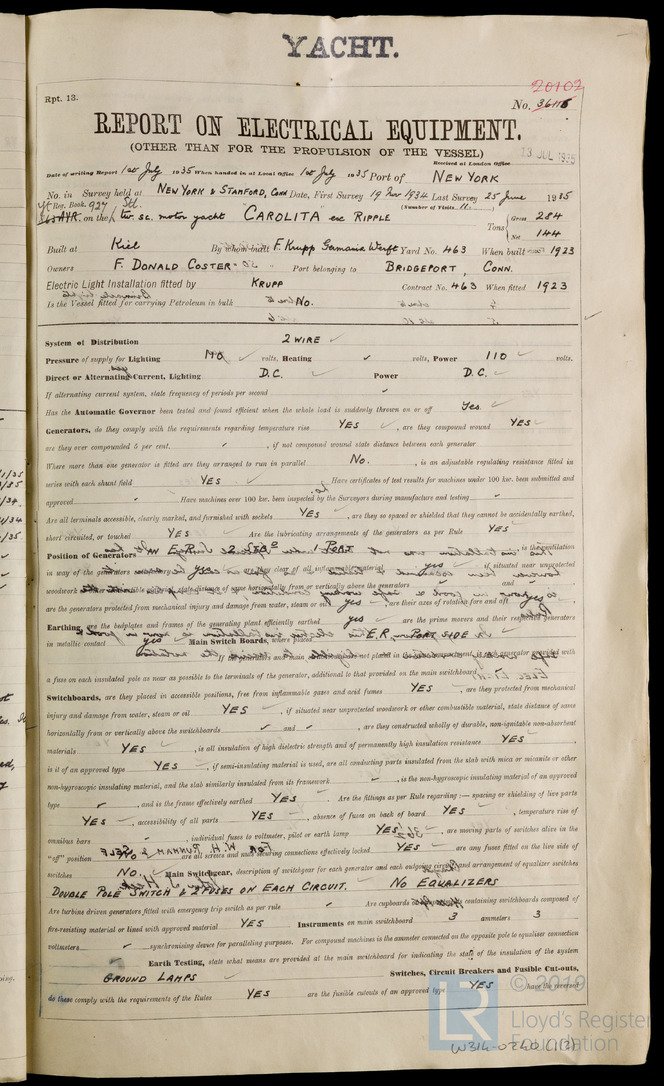 YACHT.
20102
Rpt. 13.
No. 36118
REPORT ON ELECTRICAL EQUIPMENT.
(OTHER THAN FOR THE PROPULSION OF THE VESSEL)
13 JUL 1935
Received at London Office
Date of writing Report 1st July 1935 When handed in at Local Office 1st July 1935 Port of NEW YORK
No. in Survey held at NEW YORK & STAMFORD, CONN Date, First Survey 19 Nov 1934 Last Survey 25 June 1935
Reg. Book. 927 (Number of Visits 11.)
on the tw. sc. motor yacht CAROLITA ex RIPPLE Tons Gross 284
Net 144
Built at Kiel By whom built F. Krupp Germania Werft Yard No. 463 When built 1923
Owners F. DONALD COSTER Port belonging to BRIDGEPORT, CONN.
Electric Light Installation fitted by KRUPP Contract No. 463 When fitted 1923
Is the Vessel fitted for carrying Petroleum in bulk No.
System of Distribution 2 WIRE
Pressure of supply for Lighting 110 volts, Heating volts, Power 110 volts.
Direct or Alternating Current, Lighting D.C. Power D.C.
If alternating current system, state frequency of periods per second
Has the Automatic Governor been tested and found efficient when the whole load is suddenly thrown on or off Yes.
Generators, do they comply with the requirements regarding temperature rise YES, are they compound wound YES
are they over compounded 5 per cent., if not compound wound state distance between each generator
Where more than one generator is fitted are they arranged to run in parallel No., is an adjustable regulating resistance fitted in
series with each shunt field YES Have certificates of test results for machines under 100 kw. been submitted and
approved Have machines over 100 kw. been inspected by the Surveyors during manufacture and testing
Are all terminals accessible, clearly marked, and furnished with sockets YES, are they so spaced or shielded that they cannot be accidentally earthed,
short circuited, or touched YES Are the lubricating arrangements of the generators as per Rule YES
Position of Generators IN E.R. 2 STARB 1 PORT, is the ventilation
in way of the generators satisfactory yes, are they clear of all inflammable material yes, if situated near unprotected
woodwork or other combustible material, state distance of same horizontally from or vertically above the generators and
are the generators protected from mechanical injury and damage from water, steam or oil yes, are their axes of rotation fore and aft yes
Earthing, are the bedplates and frames of the generating plant efficiently earthed yes are the prime movers and their respective generators
in metallic contact yes Main Switch Boards, where placed IN E.R. ON PORT SIDE
a fuse on each insulated pole as near as possible to the terminals of the generator, additional to that provided on the main switchboard
Switchboards, are they placed in accessible positions, free from inflammable gases and acid fumes YES, are they protected from mechanical
injury and damage from water, steam or oil YES, if situated near unprotected woodwork or other combustible material, state distance of same
horizontally from or vertically above the switchboards and, are they constructed wholly of durable, non-ignitable non-absorbent
materials YES, is all insulation of high dielectric strength and of permanently high insulation resistance YES
is it of an approved type YES, if semi-insulating material is used, are all conducting parts insulated from the slab with mica or micanite or other
non-hygroscopic insulating material, and the slab similarly insulated from its framework, is the non-hygroscopic insulating material of an approved
type, and is the frame effectively earthed YES Are the fittings as per Rule regarding:— spacing or shielding of live parts
YES, accessibility of all parts YES, absence of fuses on back of board YES, temperature rise of
omnibus bars, individual fuses to voltmeter, pilot or earth lamp YES, are moving parts of switches alive in the
"off" position No are all screws and nuts securing connections effectively locked YES are any fuses fitted on the live side of
switches No. Main Switchgear, description of switchgear for each generator and each outgoing circuit, and arrangement of equalizer switches
DOUBLE POLE SWITCH & 2 FUSES ON EACH CIRCUIT. NO EQUALIZERS
Are turbine driven generators fitted with emergency trip switch as per rule Are cupboards containing switchboards composed of
fire-resisting material or lined with approved material YES Instruments on main switchboard 3 ammeters 3
voltmeters synchronising device for paralleling purposes. For compound machines is the ammeter connected on the opposite pole to equaliser connection
Earth Testing, state what means are provided at the main switchboard for indicating the state of the insulation of the system
GROUND LAMPS Switches, Circuit Breakers and Fusible Cut-outs,
do these comply with the requirements of the Rules YES are the fusible cutouts of an approved type YES have the reversed
© 2019
LR Lloyd's Register
Foundation
W314-0240 (1/3)